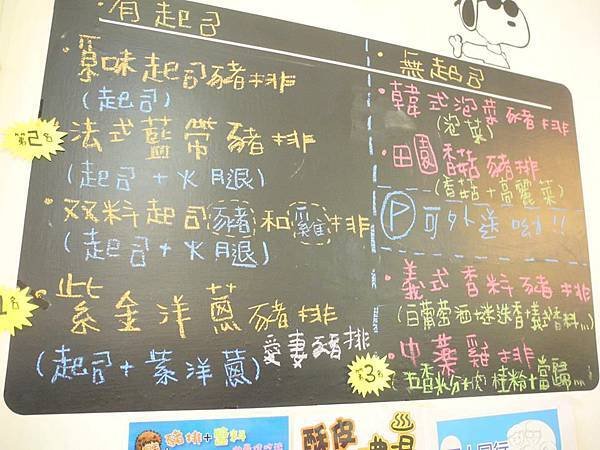 有起司
原味起司豬排
(起司)
第2名
法式藍帶豬排
(起司+火腿)
双料起司豬和雞排
(起司+火腿)
1名
紫金洋蔥豬排
愛妻豬排
(起司+紫洋蔥)
無起司
韓式泡菜豬排
(泡菜)
田園香菇豬排
(香菇+高麗菜)
P可外送呦!!
義式香料豬排
(白葡萄酒+迷迭香+義香料...)
第3名
中藥雞排
(五香粉+肉桂粉+當歸...)
豬排+醬料
酥皮